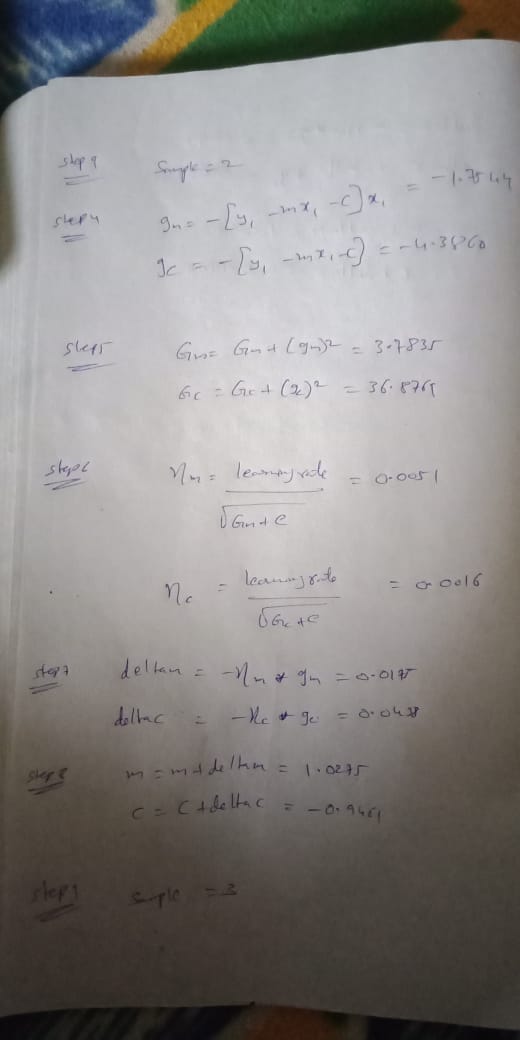 step 9 Sample = 2
step 4 gm = -[y₁ - mx₁ - c] x₁ = -1.7544
gc = -[y₁ - mx₁ - c] = -4.3860
step 5 Gm = Gm + (gm)² = 3.7835
Gc = Gc + (gc)² = 36.8769
step 6 ηm = learning rate / √Gm + e = 0.0051
ηc = learning rate / √Gc + e = 0.0016
step 7 deltam = -ηm * gm = 0.0175
deltac = -ηc * gc = 0.0438
step 8 m = m + deltam = 1.0275
c = c + deltac = -0.9461
step 9 sample = 3